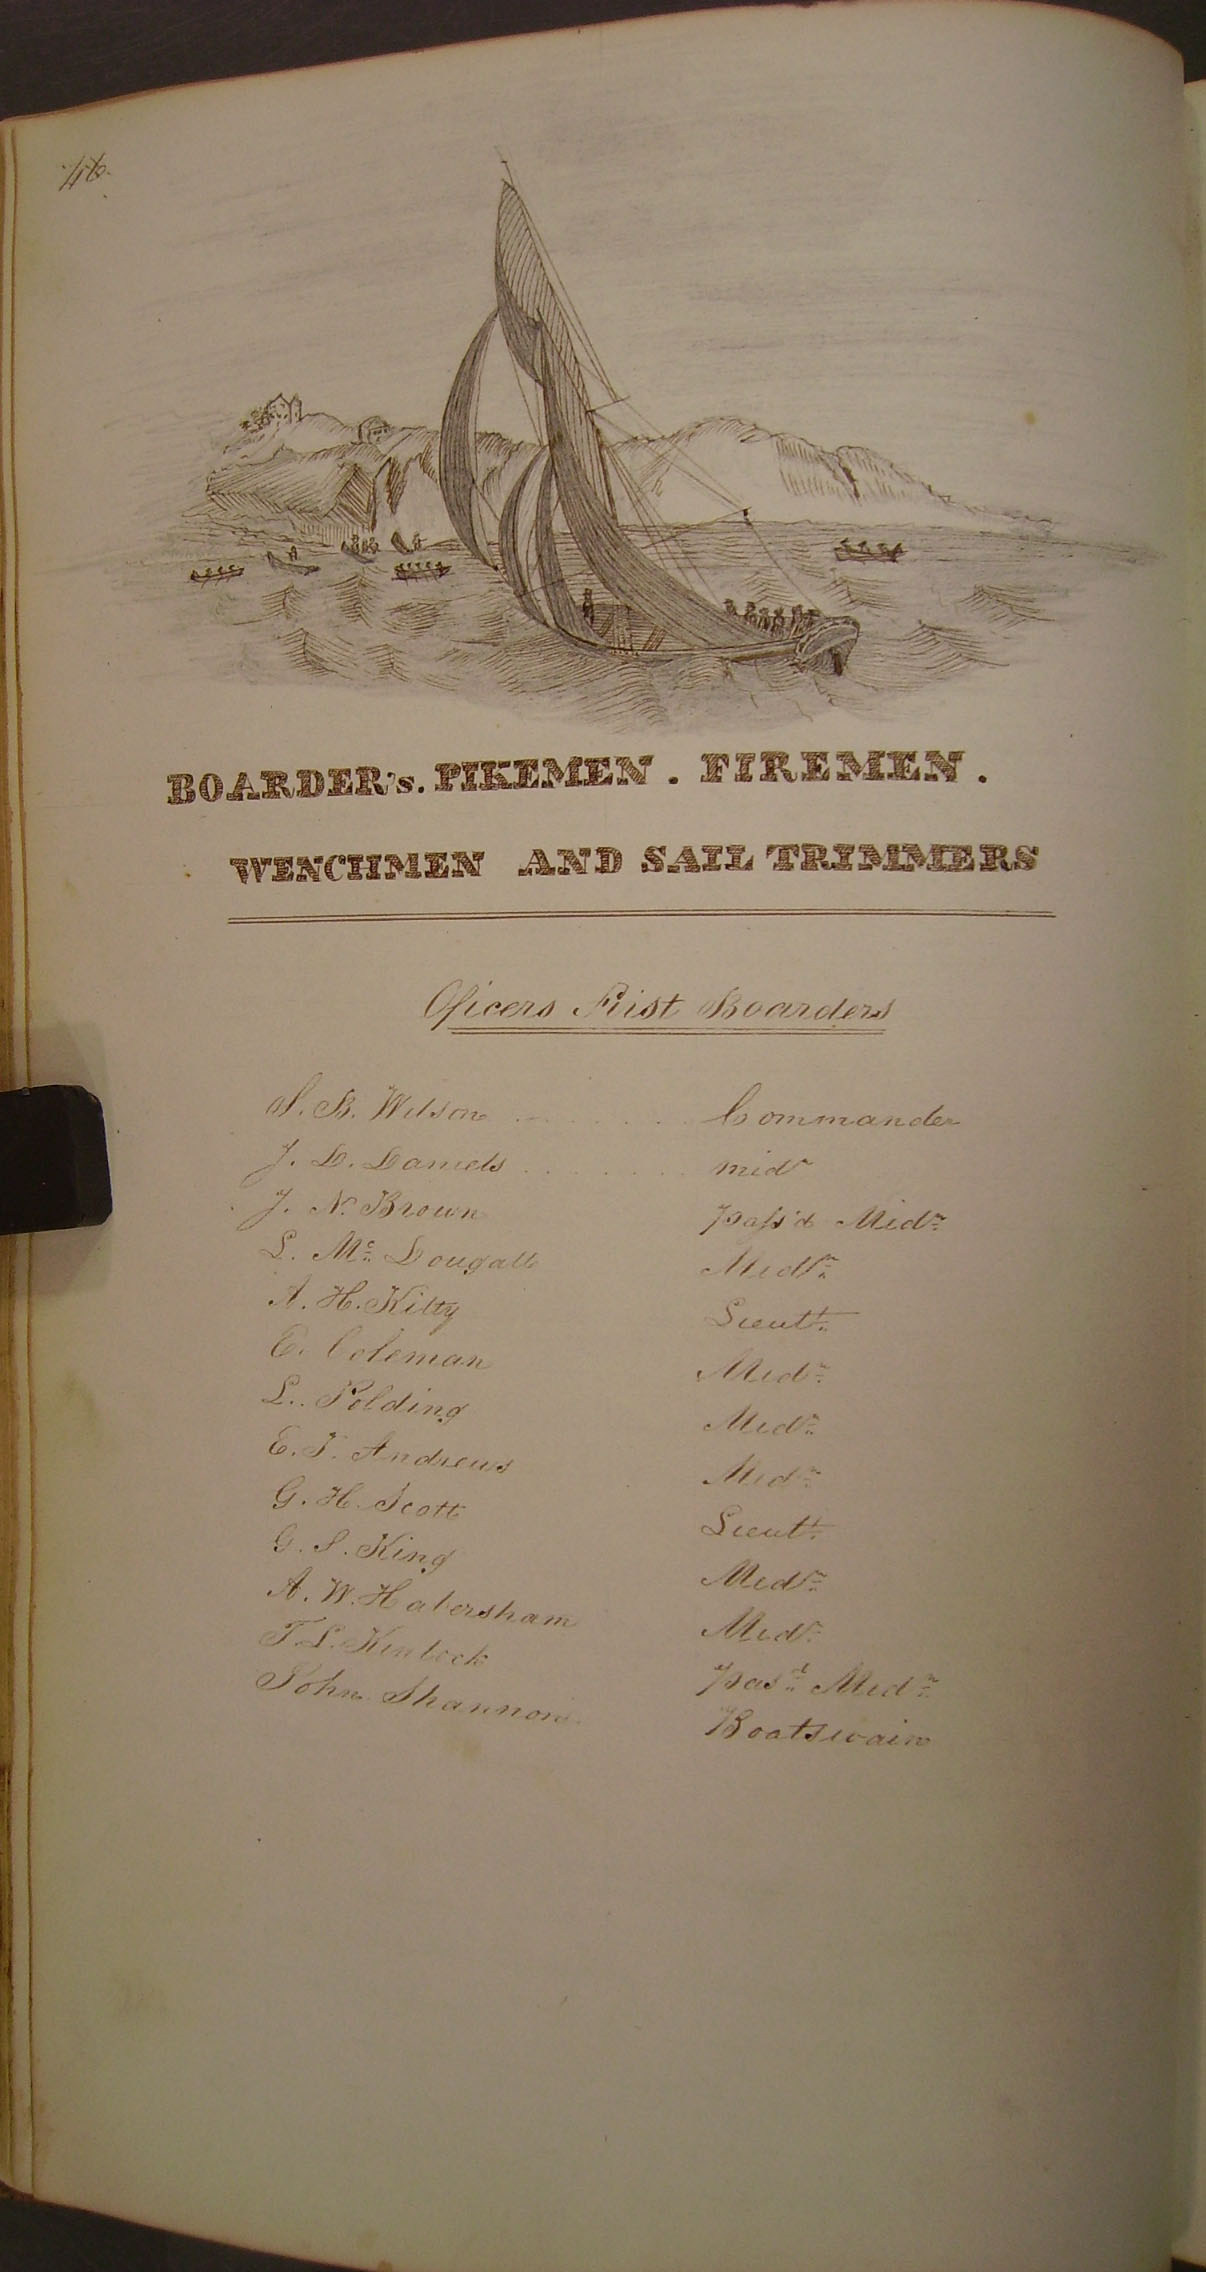 46.
BOARDER's. PIKEMEN. FIREMEN.
WENCHMEN AND SAIL TRIMMERS
Oficers First Boarders
S. B. Wilson Commander
J. D. Daniels mid
J. N. Brown pass'd Midn
L. Mc Dougall Midn
A. H. Kilty Lieut
E. Coleman Midn
L. Polding Midn
E. T. Andrews Midn
G. H. Scott Lieut
G. S. King Midn
A. W. Habersham Mid
T. L. Kinlock pasd Midn
John Shannon Boatswain